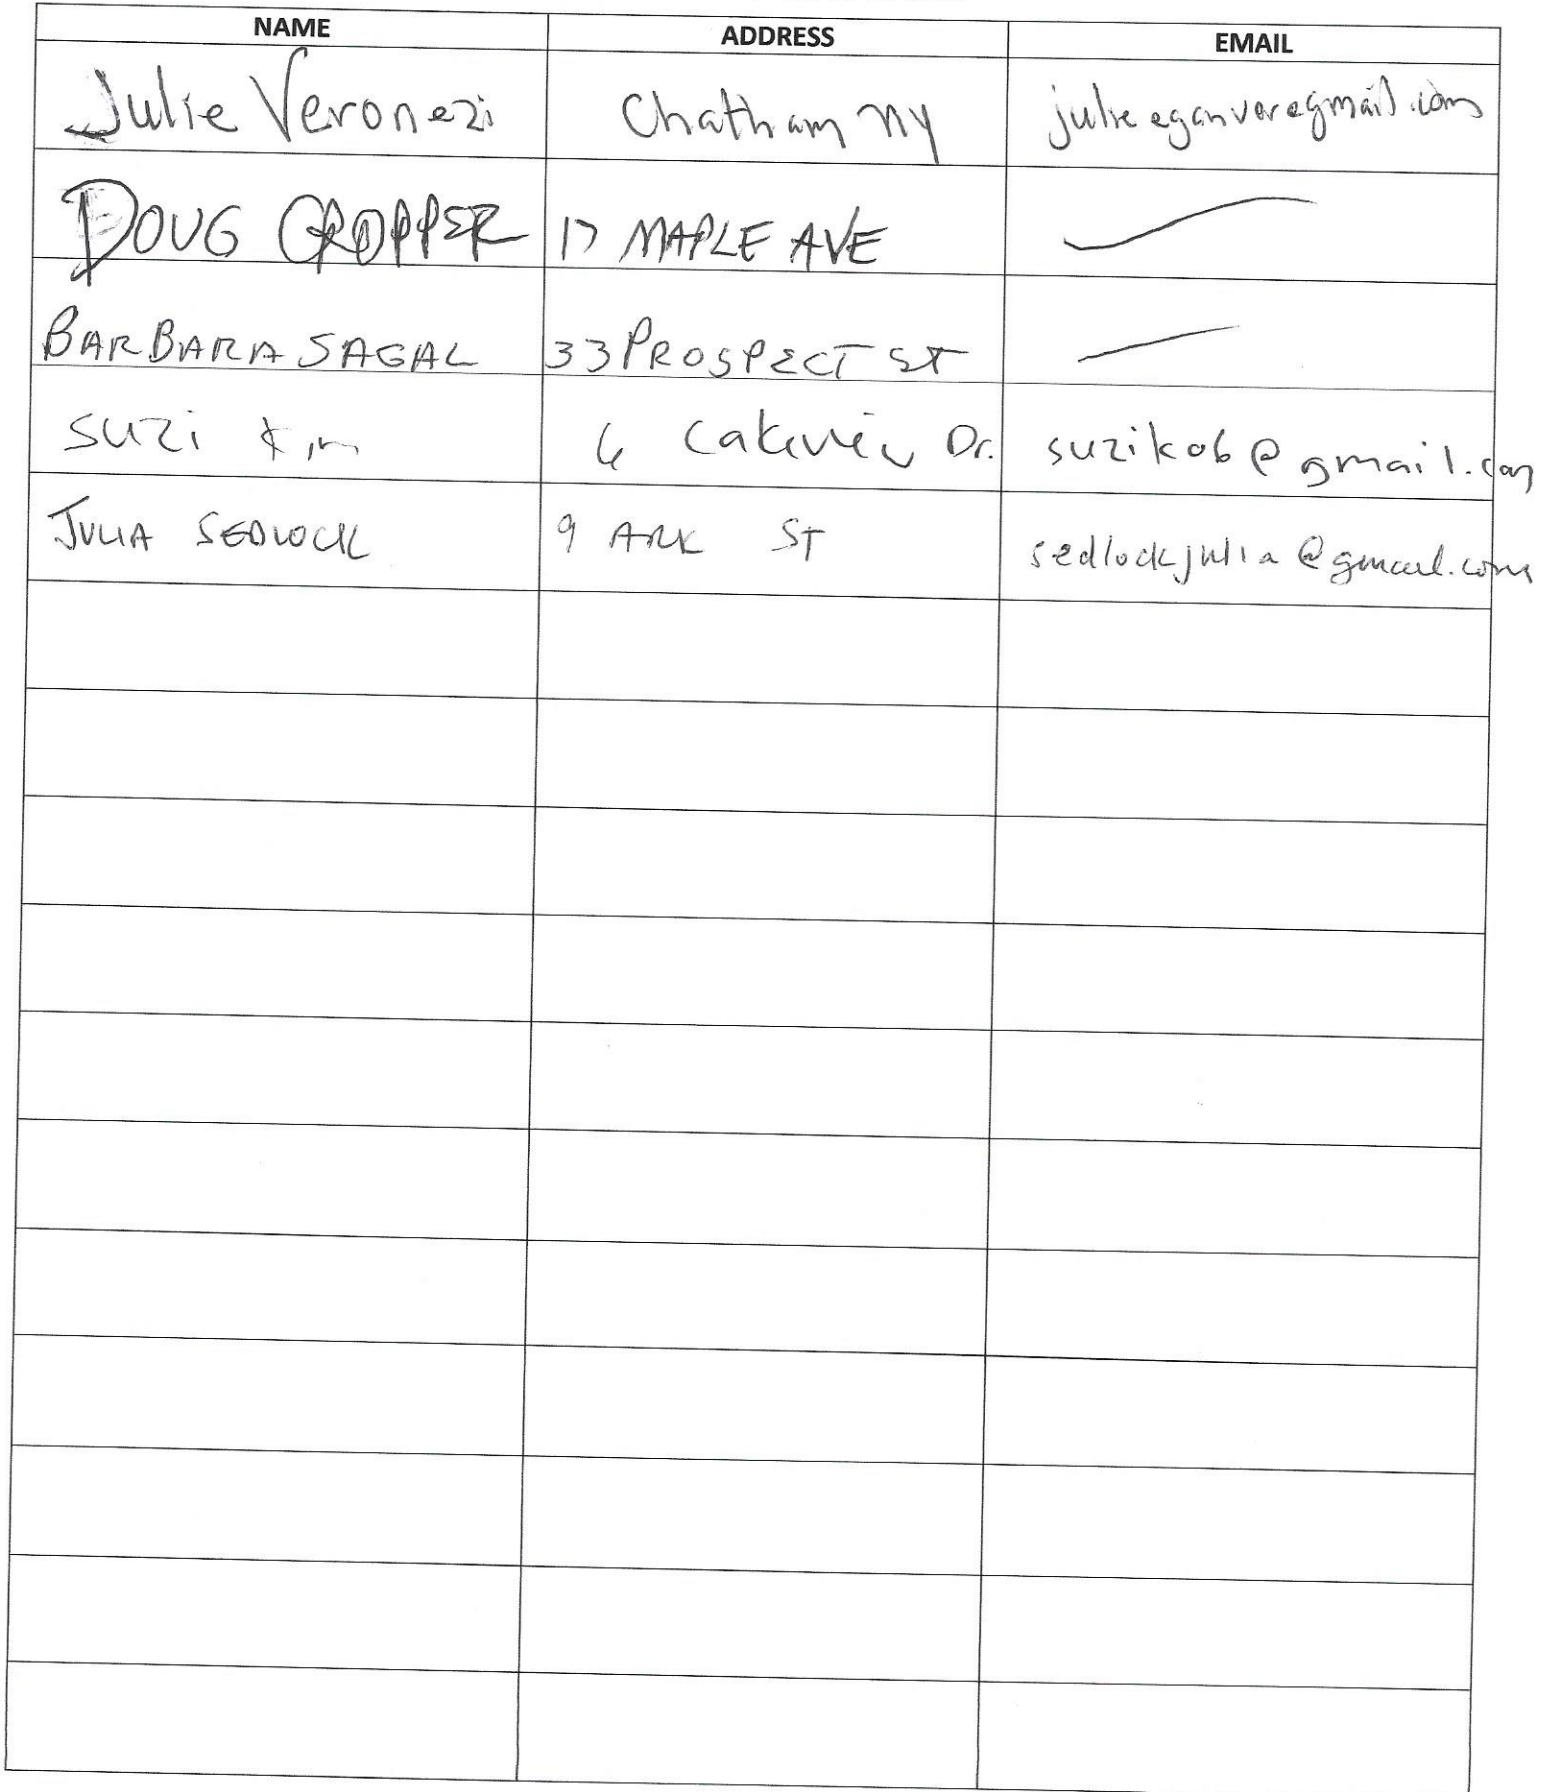 NAME ADDRESS EMAIL
Julie Veronezi Chatham NY julieeganver@gmail.com
DOUG CROPPER 17 MAPLE AVE
BARBARA SAGAL 33 PROSPECT ST
suzi kim 6 Dr. suzik06@gmail.com
JULIA SEDLOCK 9 ARK ST sedlockjulia@gmail.com